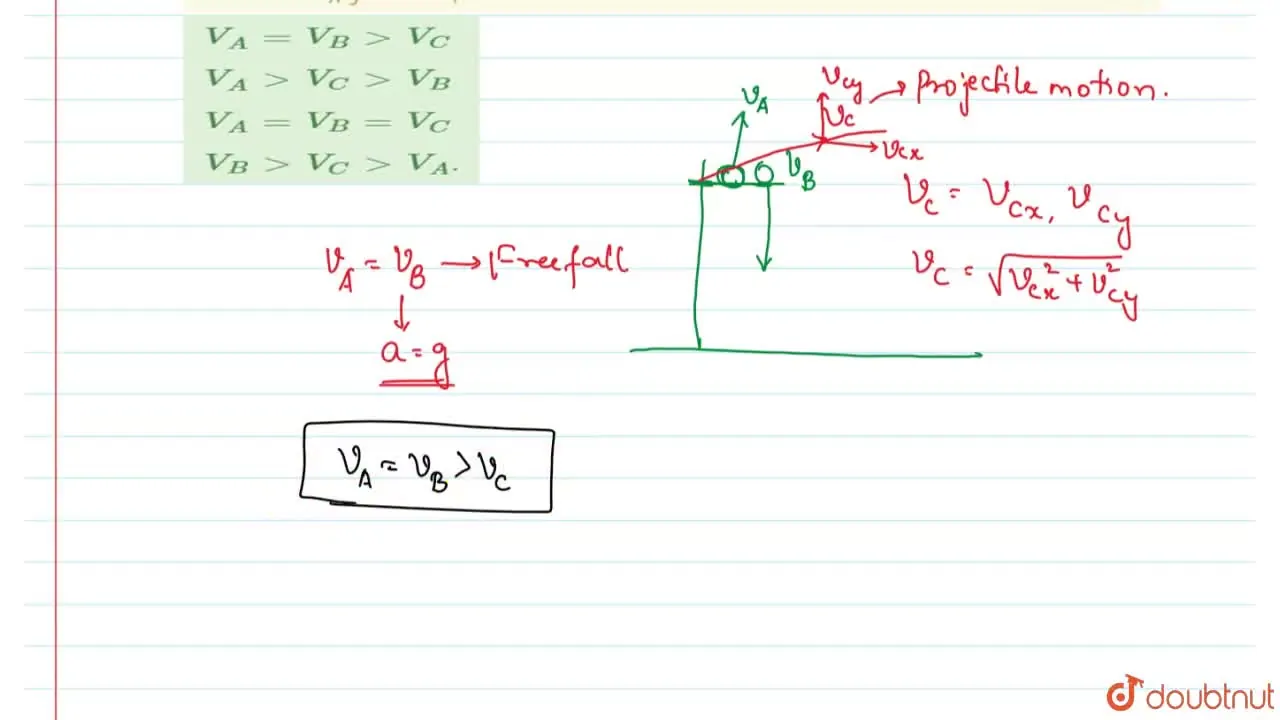 V_A = V_B > V_C
V_A > V_C > V_B
V_A = V_B = V_C
V_B > V_C > V_A.
v_A
v_cy
v_c → Projectile motion.
v_cx
v_B
v_c = v_cx, v_cy
v_c = √v_cx² + v_cy²
v_A = v_B → Freefall
↓
a = g
v_A = v_B > v_C
doubtnut